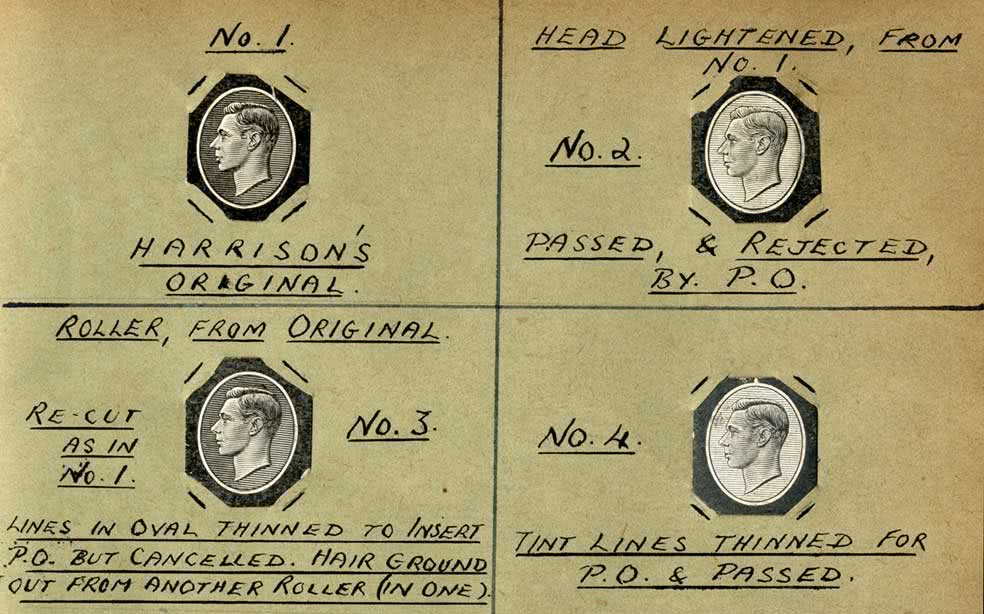 No. 1.
HARRISON'S
ORIGINAL.
HEAD LIGHTENED, FROM
NO. 1.
No. 2.
PASSED, & REJECTED,
BY. P.O.
ROLLER, FROM ORIGINAL.
RE-CUT
AS IN
No. 1.
No. 3.
LINES IN OVAL THINNED TO INSERT
P.O. BUT CANCELLED. HAIR GROUND
OUT FROM ANOTHER ROLLER (IN ONE).
No. 4.
TINT LINES THINNED FOR
P.O. & PASSED.